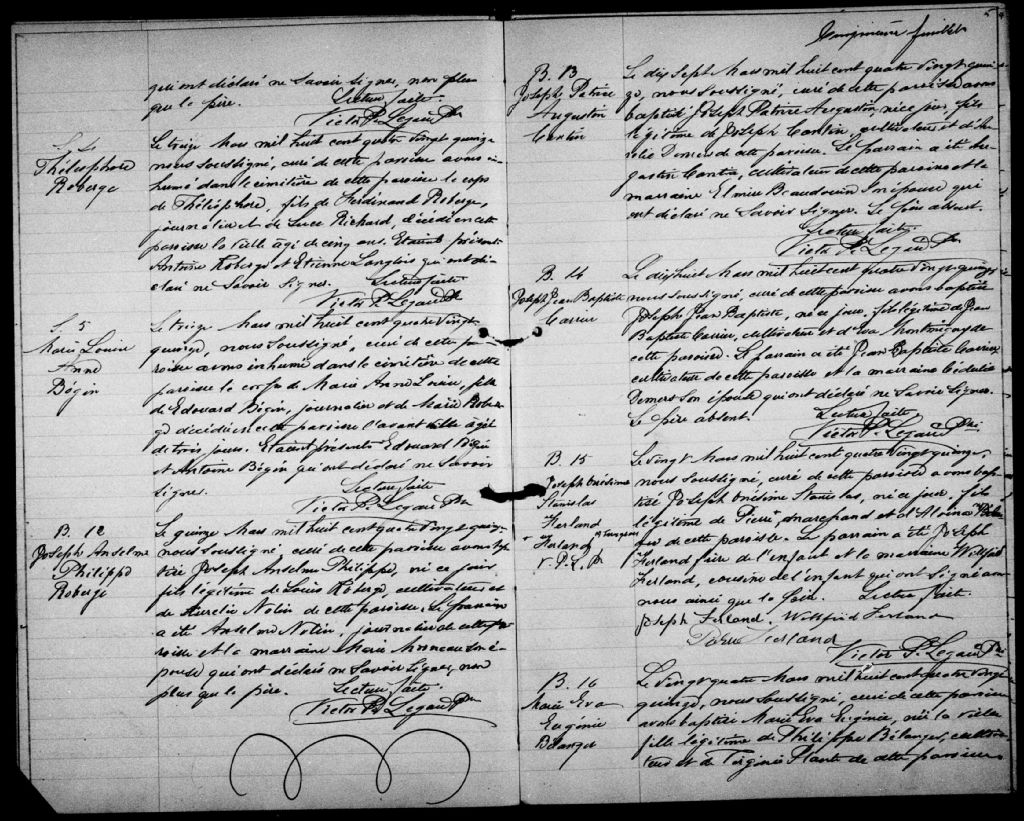 qui ont déclaré ne savoir signer, non plus
que le père. Lecture faite.
Victor P. Legaré Ptr
S. 4
Thélesphore
Roberge
Le treize Mars mil huit cent quatre vingt quinze
nous soussigné, curé de cette paroisse avons in-
humé dans le cimitière de cette paroisse le corps
de Théléphore, fils de Ferdinand Roberge,
journalier et de Luce Richard, décédé en cette
paroisse la veille agé de cinq ans. Etaient présents
Antoine Roberge et Etienne Langlois qui ont dé-
claré ne savoir signer. Lecture faite
Victor P. Legaré Ptr
S. 5
Marie Louise
Anne
Bégin
Le treize Mars mil huit cent quatre vingt
quinze, nous soussigné, curé de cette pa-
roisse avons inhumé dans le cimitière de cette
paroisse le corps de Marie Anne Louise, fille
de Edouard Bégin, journalier et de Marie Rober-
ge décédée en cette paroisse l'avant veille agée
de trois jours. Etaient présents Edouard Bégin
et Antoine Bégin qui ont déclaré ne savoir
signer. Lecture faite
Victor P. Legaré Ptr
B. 12
Joseph Anselme
Philippe
Roberge
Le quinze Mars mil huit cent quatre vingt quinze
nous soussigné, curé de cette paroisse avons bap-
tisé Joseph Anselme Philippe, né ce jour
fils légitime de Louis Roberge, cultivateur et
de Aurélie Nolin de cette paroisse. Le parrain
a été Anselme Nolin, journalier de cette pa-
roisse et la marraine Marie son é-
pouse qui ont déclaré ne savoir signer, non
plus que le père. Lecture faite.
Victor P. Legaré Ptr
feuillet
B. 13
Joseph Patrice
Augustin
Cantin
Le dix sept Mars mil huit cent quatre vingt quin-
ze, nous soussigné, curé de cette paroisse avons
baptisé Joseph Patrice Augustin, né ce jour, fils
légitime de Joseph Cantin, cultivateur et d'A-
mélie Demers de cette paroisse. Le parrain a été Au-
gustin Cantin, cultivateur de cette paroisse et la
marraine Elmire Beaudouin son épouse qui
ont déclaré ne savoir signer. Le père absent.
Lecture faite
Victor P. Legaré Ptr
B. 14
Joseph Jean Baptiste
Carrier
Le dix huit Mars mil huit cent quatre vingt quinze
nous soussigné, curé de cette paroisse avons baptisé
Joseph Jean Baptiste, né ce jour, fils légitime de Jean
Baptiste Carrier, cultivateur et d'Eva Montminy de
cette paroisse. Le parrain a été Jean Baptiste Carrier
cultivateur de cette paroisse et la marraine Cédulie
Demers son épouse qui ont déclaré ne savoir signer.
Le père absent. Lecture faite.
Victor P. Legaré Ptr
B. 15
Joseph Onésime
Stanislas
Ferland
Ferland
V. P. L. Ptr
Le vingt Mars mil huit cent quatre vingt quinze,
nous soussigné, curé de cette paroisse avons bap-
tisé Joseph Onésime Stanislas, né ce jour, fils
légitime de Pierre, marchand et d'Alvina
de cette paroisse. Le parrain a été Joseph
Ferland frère de l'enfant et la marraine Wilfrid
Ferland, cousine de l'enfant qui ont signé avec
nous ainsi que le père. Lecture faite.
Joseph Ferland. Willfrid Ferland
Pierre Ferland
Victor P. Legaré Ptr
B. 16
Marie Eva
Eugénie
Bélanger
Le vingt quatre Mars mil huit cent quatre vingt
quinze, nous soussigné, curé de cette paroisse
avons baptisé Marie Eva Eugénie, née la veille
fille légitime de Philippe Bélanger, cultiva-
teur et de Virginie Plante de cette paroisse